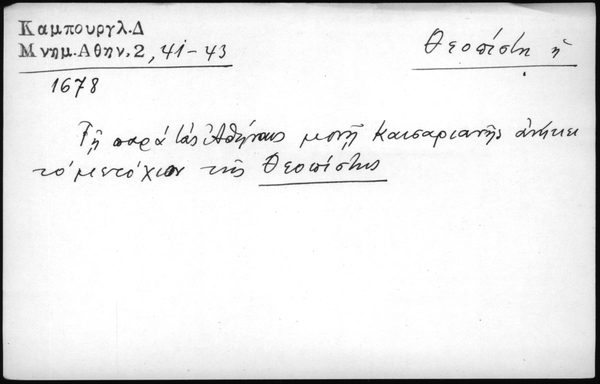 Καμπουργλ.Δ
Μνημ.Αθην.2, 41-43
Θεοπίστη ἡ
1678
Τῇ παρὰ τὰς Ἀθήνας μονῇ Καισαριανῆς ἀνήκει
τὸ μετόχιον τῆς Θεοπίστης